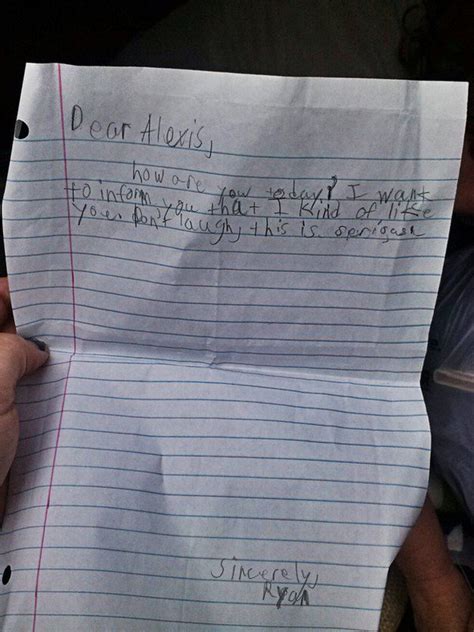 Dear Alexis,
how are you today? I want
to inform you that I kind of like
you. Don't laugh, this is serigase
Sincerely,
Ryan